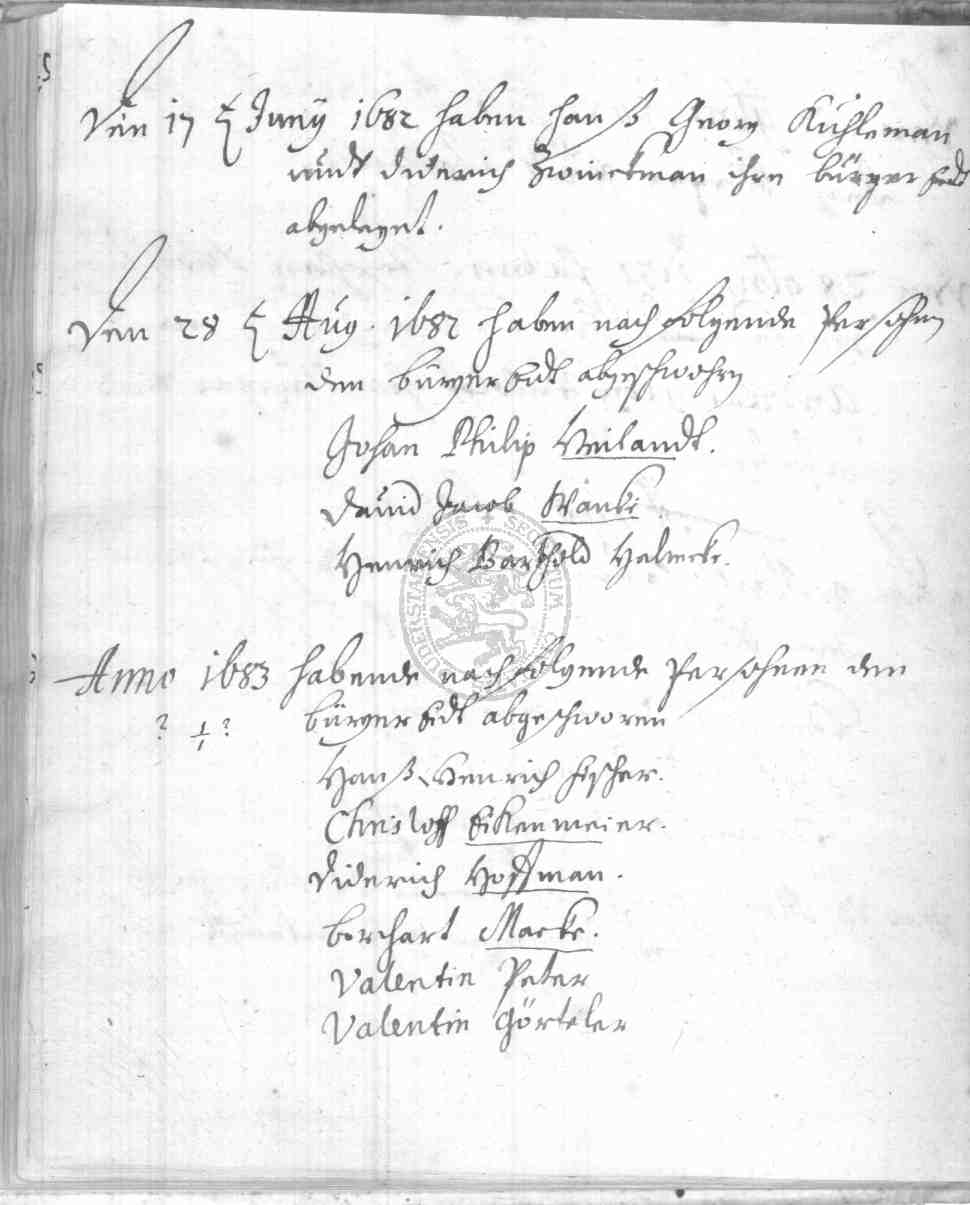 Den 17 Junÿ 1682 haben Hanß Georg Kühleman
undt Diderich Zwinckman ihren bürger Eidt
abgelegt.
Den 28 Aug. 1682 haben nachfolgende Persohnen
den bürger Eidt abgeschwohren
Johan Philip Weilandt.
David Jacob Wanke
Henrich Barthold Helmcke.
Anno 1683 habende nachfolgende Persohnen den
? ? bürger Eidt abgeschworen
Hanß Henrich Fischer.
Christoff Eikenmeier.
Diderich Hoffman.
borchart Macke.
Valentin Peter
Valentin Görteler